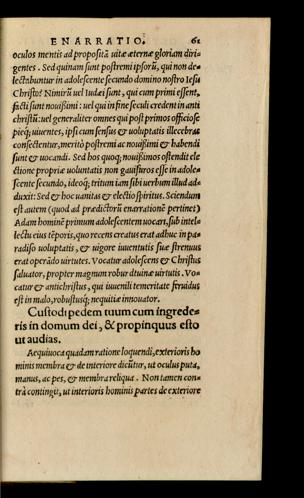 ENARRATIO. 61
oculos mentis ad propositã uitæ æternæ gloriam diri-
gentes. Sed quinam sunt postremi ipsorũ, qui non de-
lectabuntur in adolescente secundo domino nostro Iesu
Christo? Nimirũ uel Iudæi sunt, qui cum primi essent,
facti sunt nouißimi: uel qui in fine seculi credent in anti
christũ: uel generaliter omnes qui post primos officiose
pieq; uiuentes, ipsi cum sensus & uoluptatis illecebras
consectentur, meritò postremi ac nouißimi & habendi
sunt & uocandi. Sed hos quoq; nouißimos ostendit ele
ctione propriæ uoluntatis non gauisuros esse in adole-
scente secundo, ideoq; tritum iam sibi uerbum illud ad-
duxit: Sed & hoc uanitas & electio spiritus. Sciendum
est autem (quod ad prædictorũ enarrationẽ pertinet)
Adam hominẽ primum adolescentem uocari, sub intel-
lectu eius tẽporis, quo recens creatus erat adhuc in pa-
radiso uoluptatis, & uigore iuuentutis suæ strenuus
erat operãdo uirtutes. Vocatur adolescens & Christus
saluator, propter magnum robur diuinæ uirtutis. Vo-
catur & antichristus, qui iuuenili temeritate feruidus
est in malo, robustusq; nequitiæ innouator.
Custodi pedem tuum cum ingrede-
ris in domum dei, & propinquus esto
ut audias.
Aequiuoca quadam ratione loquendi, exterioris ho
minis membra & de interiore dicũtur, ut oculus puta,
manus, ac pes, & membra reliqua. Non tamen con-
trà contingit, ut interioris hominis partes de exteriore